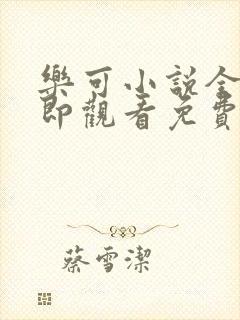 樂可小說全
即觀看免費
蔡雪潔